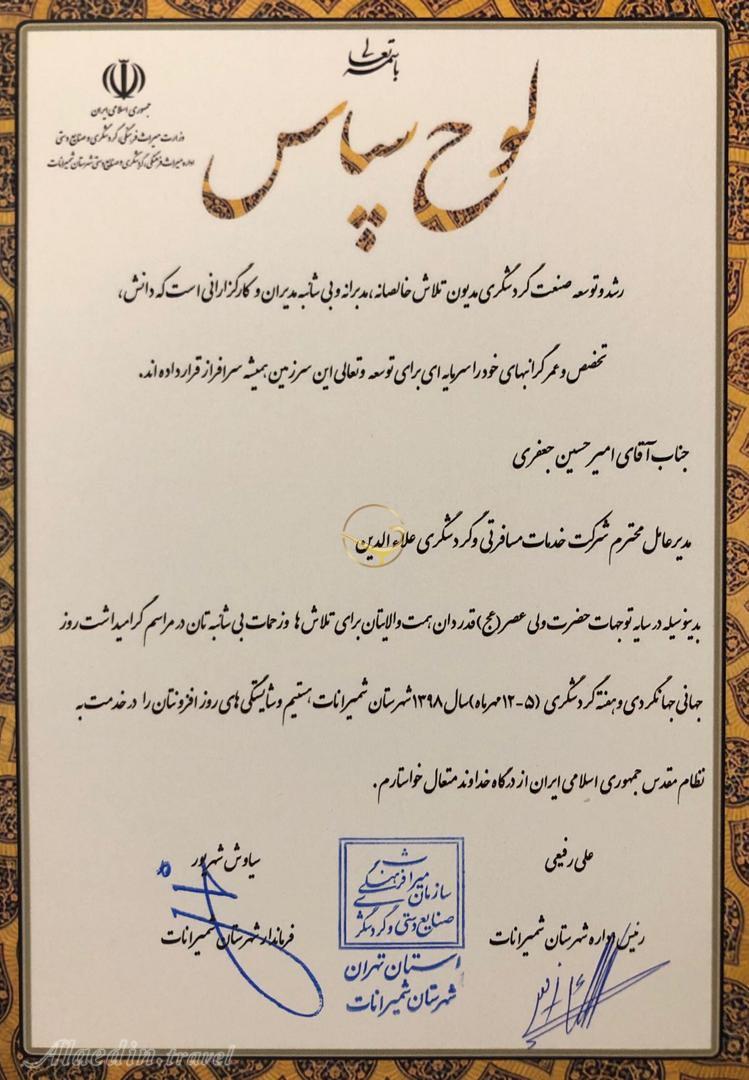 باسمه تعالی
جمهوری اسلامی ایران
وزارت میراث فرهنگی، گردشگری و صنایع دستی
اداره میراث فرهنگی، گردشگری و صنایع دستی شهرستان شمیرانات
لوح سپاس
رشد و توسعه صنعت گردشگری مدیون تلاش خالصانه، مدبرانه و بی شائبه مدیران و کارگزارانی است که دانش،
تخصص و عمر گرانبهای خود را سرمایه ای برای توسعه و تعالی این سرزمین همیشه سرافراز قرار داده اند.
جناب آقای امیرحسین جعفری
مدیرعامل محترم شرکت خدمات مسافرتی و گردشگری علاء الدین
بدینوسیله در سایه توجهات حضرت ولی عصر (عج) قدردان همت والایتان برای تلاش ها و زحمات بی شائبه تان در مراسم گرامیداشت روز
جهانی جهانگردی و هفته گردشگری (۵-۱۲ مهرماه) سال ۱۳۹۸ شهرستان شمیرانات هستیم و شایستگی های روز افزونتان را در خدمت به
نظام مقدس جمهوری اسلامی ایران از درگاه خداوند متعال خواستارم.
علی رفیعی
رئیس اداره شهرستان شمیرانات
سیاوش شهریور
فرماندار شهرستان شمیرانات
سازمان میراث فرهنگی
صنایع دستی و گردشگری
استان تهران
شهرستان شمیرانات
Alaedin.travel